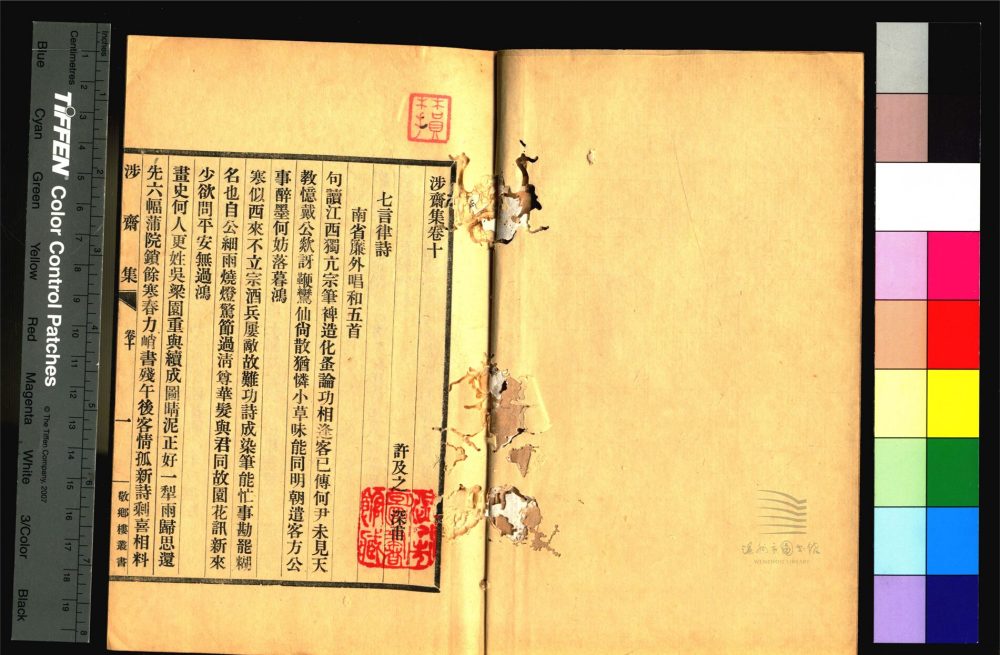 涉齋集卷十
許及之 深甫
七言律詩
南省廉外唱和五首
句讀江西獨亢宗筆裨造化蚤論功相逢客已傳何尹未見天
教憶戴公欻訝鞭鸞仙尙散猶憐小草味能同明朝遣客方公
事醉墨何妨落暮鴻
寒似西來不立宗酒兵屢敵故難功詩成染筆能忙事勘罷糊
名也自公細雨燒燈驚節過淸尊華髮與君同故園花訊新來
少欲問平安無過鴻
畫史何人更姓吳梁園重與續成圖晴泥正好一犁雨歸思還
先六幅蒲院鎖餘寒春力峭書殘午後客情孤新詩剩喜相料
涉齋集
卷十
一
敬鄉樓叢書
溫州市圖書館
WENZHOU LIBRARY
Inches
Centimetres
TIFFEN Color Control Patches
© The Tiffen Company, 2007
Blue
Cyan
Green
Yellow
Red
Magenta
White
3/Color
Black